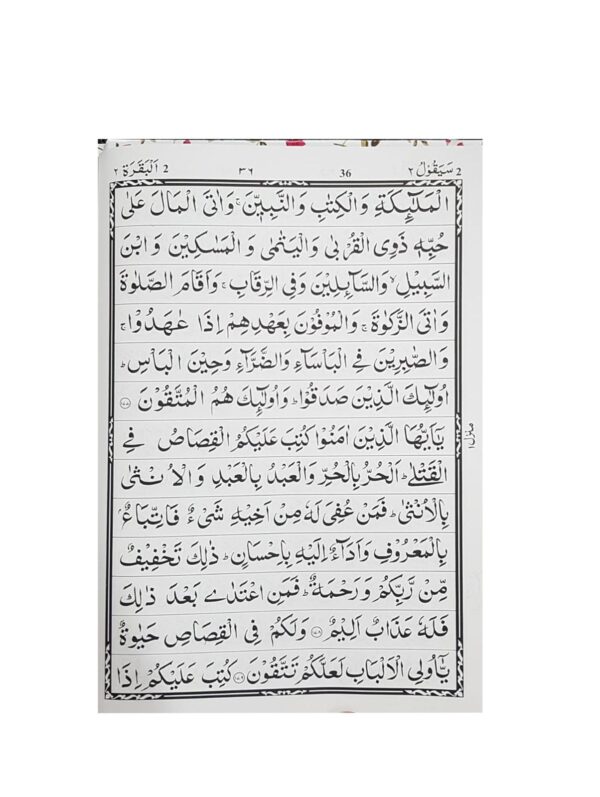 2 سَيَقُوْلُ ٢ 36 ٣٦ 2 اَلْبَقَرَة ٢
الْمَلٰٓئِكَةِ وَالْكِتٰبِ وَالنَّبِيّٖنَ ۚ وَاٰتَى الْمَالَ عَلٰى
حُبِّهٖ ذَوِى الْقُرْبٰى وَالْيَتٰمٰى وَ الْمَسٰكِيْنَ وَ ابْنَ
السَّبِيْلِ ۙ وَالسَّآئِلِيْنَ وَفِى الرِّقَابِ ۚ وَاَقَامَ الصَّلٰوةَ
وَاٰتَى الزَّكٰوةَ ۚ وَالْمُوْفُوْنَ بِعَهْدِهِمْ اِذَا عٰهَدُوْا ۚ
وَالصّٰبِرِيْنَ فِى الْبَاْسَآءِ وَالضَّرَّآءِ وَحِيْنَ الْبَاْسِ ؕ
اُولٰٓئِكَ الَّذِيْنَ صَدَقُوْا ؕ وَاُولٰٓئِكَ هُمُ الْمُتَّقُوْنَ
يٰٓاَيُّهَا الَّذِيْنَ اٰمَنُوْا كُتِبَ عَلَيْكُمُ الْقِصَاصُ فِى
الْقَتْلٰى ؕ اَلْحُرُّ بِالْحُرِّ وَالْعَبْدُ بِالْعَبْدِ وَالْاُنْثٰى
بِالْاُنْثٰى ؕ فَمَنْ عُفِىَ لَهٗ مِنْ اَخِيْهِ شَىْءٌ فَاتِّبَاعٌۢ
بِالْمَعْرُوْفِ وَاَدَآءٌ اِلَيْهِ بِاِحْسَانٍ ؕ ذٰلِكَ تَخْفِيْفٌ
مِّنْ رَّبِّكُمْ وَ رَحْمَةٌ ؕ فَمَنِ اعْتَدٰى بَعْدَ ذٰلِكَ
فَلَهٗ عَذَابٌ اَلِيْمٌ وَلَكُمْ فِى الْقِصَاصِ حَيٰوةٌ
يّٰٓاُولِى الْاَلْبَابِ لَعَلَّكُمْ تَتَّقُوْنَ كُتِبَ عَلَيْكُمْ اِذَا
منزل ١